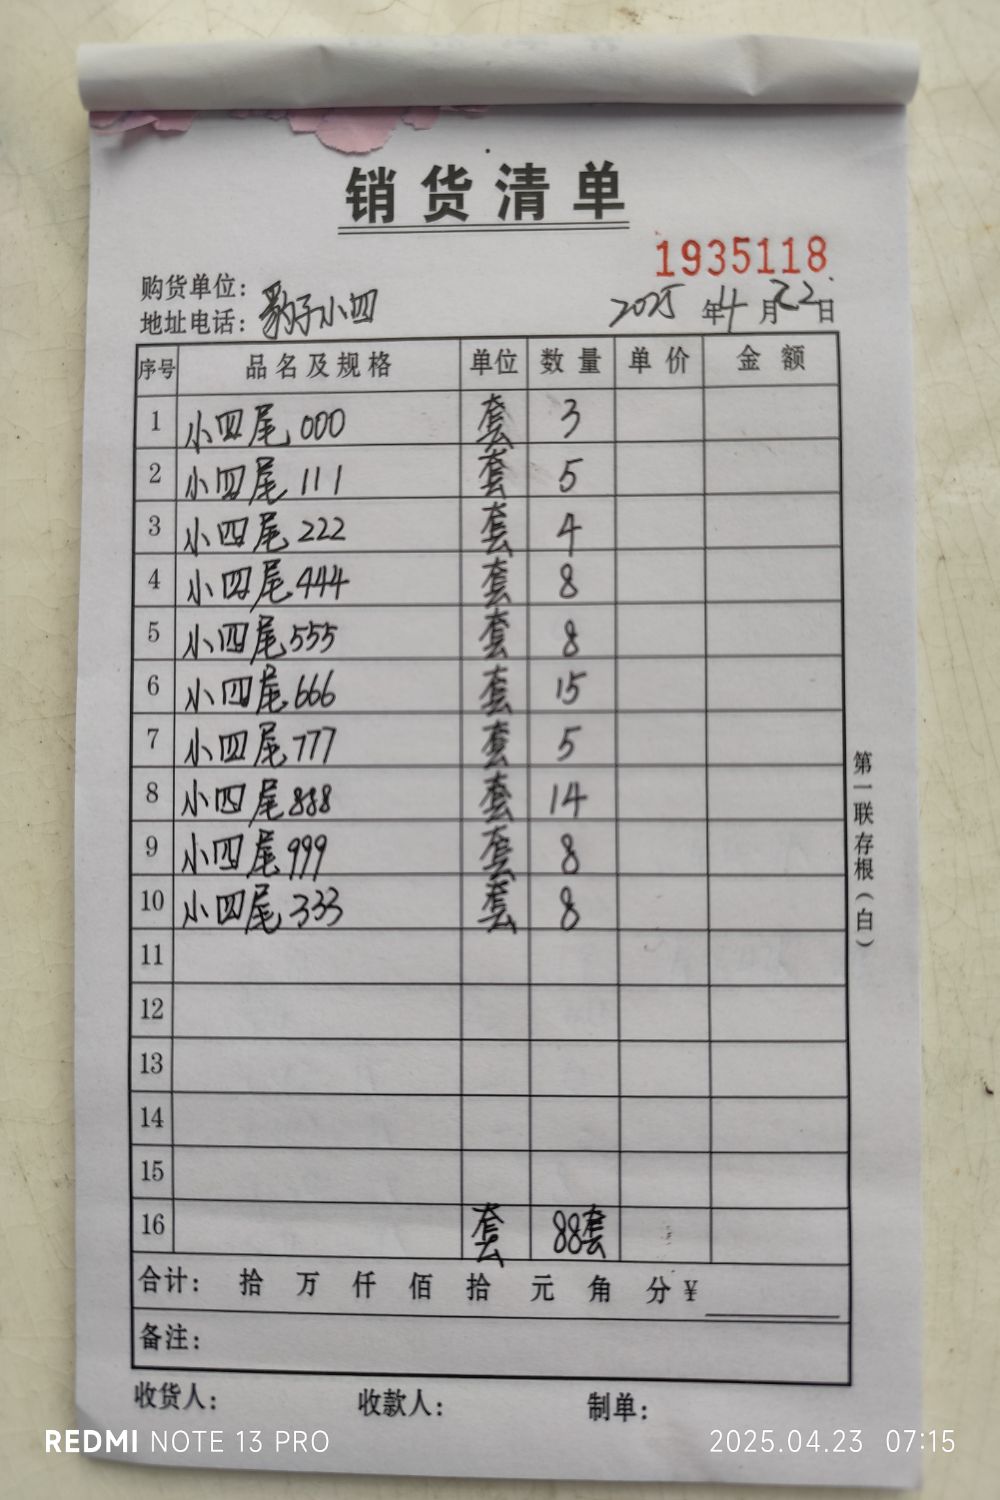 销货清单
1935118
购货单位：
地址电话：豹子小四 2025年4月22日
序号 品名及规格 单位 数量 单价 金额
1 小四尾 000 套 3
2 小四尾 111 套 5
3 小四尾 222 套 4
4 小四尾 444 套 8
5 小四尾 555 套 8
6 小四尾 666 套 15
7 小四尾 777 套 5
8 小四尾 888 套 14
9 小四尾 999 套 8
10 小四尾 333 套 8
11
12
13
14
15
16 套 88套
合计： 拾 万 仟 佰 拾 元 角 分 ¥
备注：
收货人： 收款人： 制单：
第一联存根（白）
REDMI NOTE 13 PRO 2025.04.23 07:15